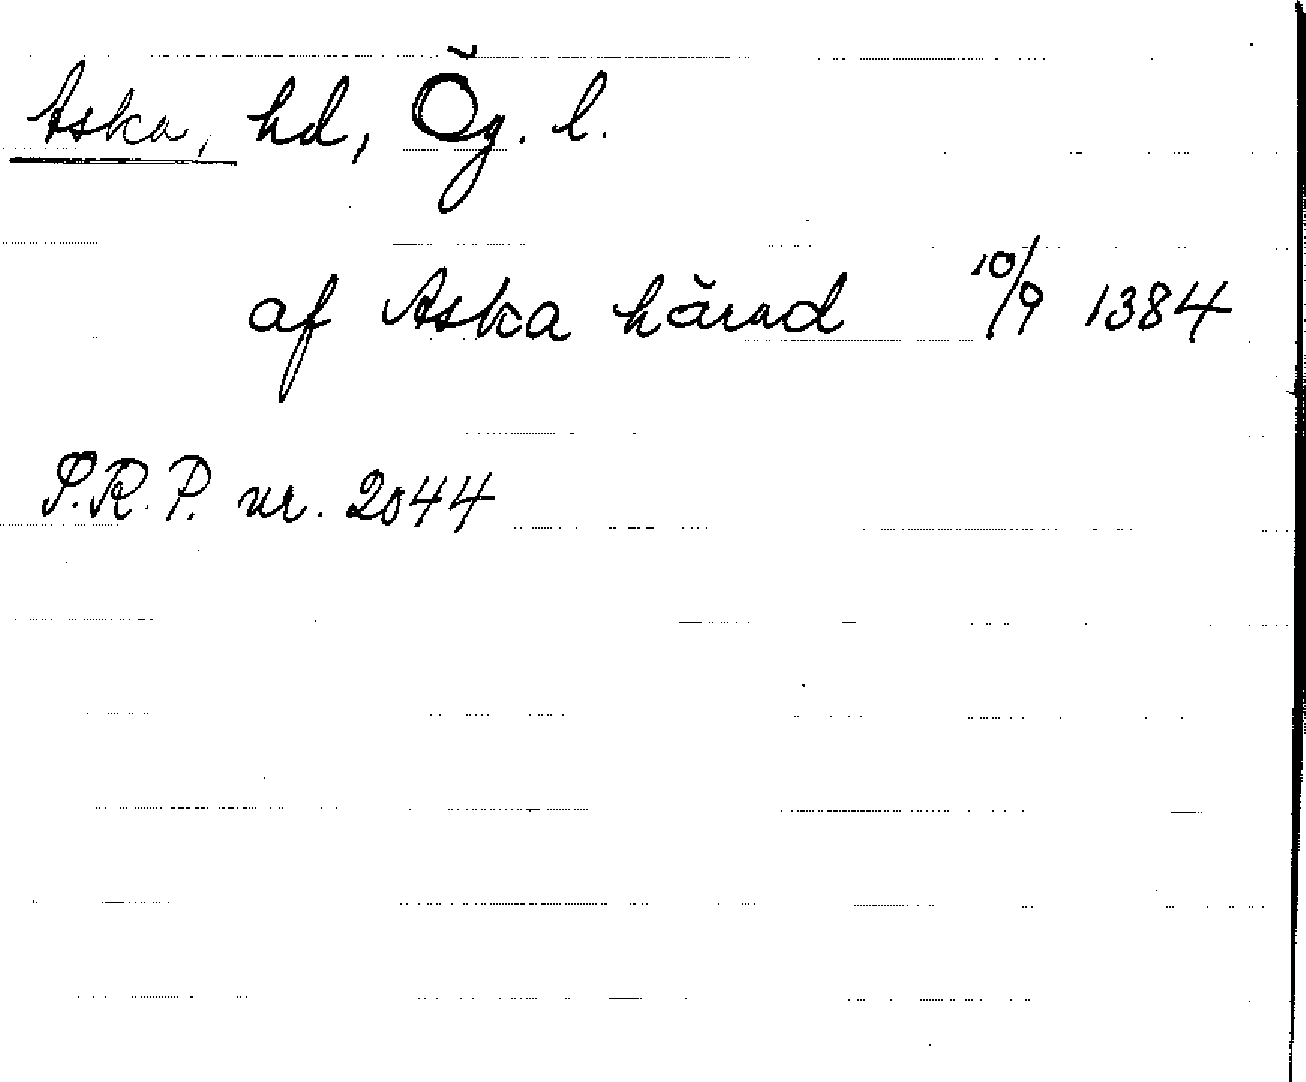 Aska, hd, Ög. l.
af Aska härad 10/9 1384
P.R.P. nr. 2044